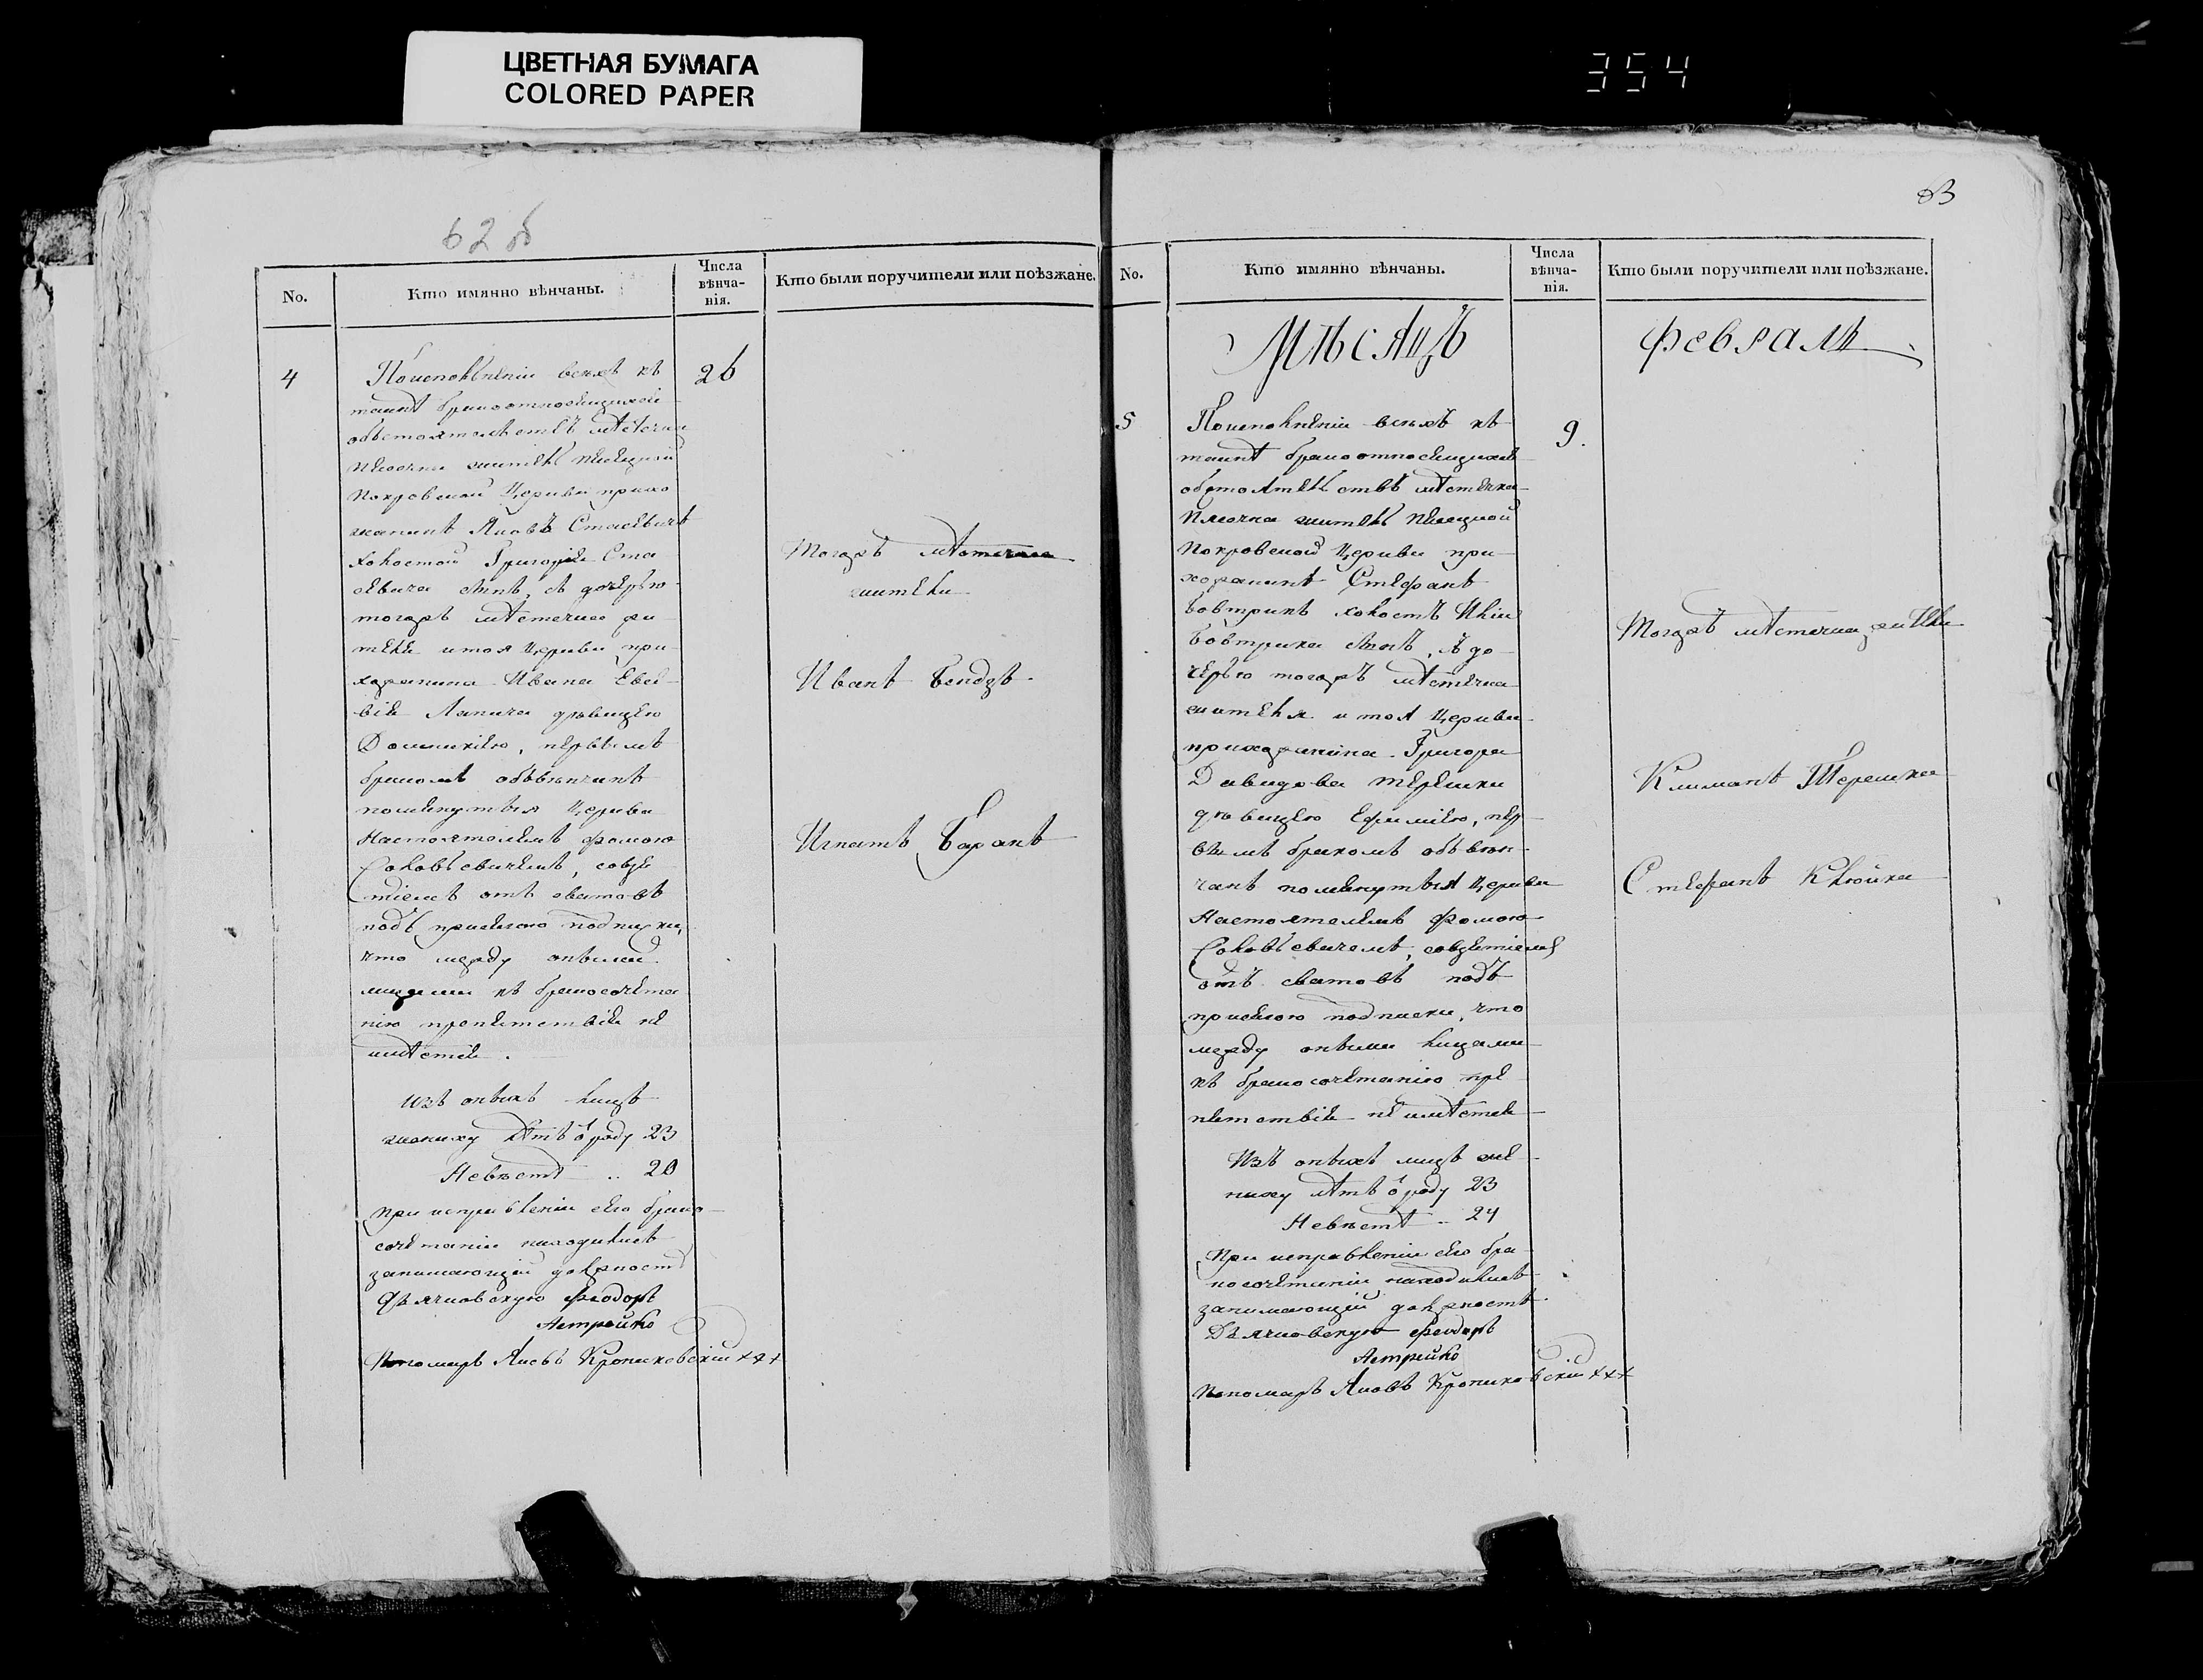 ЦВЕТНАЯ БУМАГА
COLORED PAPER
354
62 об
No.
Кто имянно вѣнчаны.
Числа
вѣнча-
нія.
Кто были поручители или поѣзжане.
4
26
По исполненіи всѣхъ къ
таинт брако относящихся
обстоятельствъ мѣстечка
житель
Покровской Церкви прихо
жанинъ Яковъ Стасевичъ
холостой Григорія Ста
севича сынъ, съ дочерью
тогожъ мѣстечка жи-
теля и тоя Церкви при-
хожанина Ивана
Лапича дѣвицею
первымъ
бракомъ обвѣнчанъ
помянутыя Церкви
Настоятелемъ Фомою
отъ сватовъ
подъ присягою подписки,
что между оными
лицами къ бракосочета
нію препятствія не
имѣется.
Изъ оныхъ лицъ
жениху лѣтъ ѿ роду 23
Невѣстѣ .. 20
При исправленіи сего брако-
сочетанія находились
занимающій должность
Дьячковскую Феодоръ
Астрейко
Пономаръ Яковъ Кропиховскій +++
Тогожъ мѣстечка
жители
Иванъ Бендзъ
Игнатъ Баранъ
83
No.
Кто имянно вѣнчаны.
Числа
вѣнча-
нія.
Кто были поручители или поѣзжане.
Мѣсяцъ
Февраль
5
9.
По исполненіи всѣхъ къ
таинт брако относящихся
обстоятельствъ мѣстечка
житель
Покровской Церкви при-
хожанинъ Стефанъ
Бовтрикъ холостъ
Бовтрика сынъ, съ до-
черью тогожъ мѣстечка
жителя и тоя Церкви
прихожанина Григора
Давидова Терешки
дѣвицею Ефиміею, пер-
вымъ бракомъ обвѣн-
чанъ помянутыя Церкви
Настоятелемъ Фомою
отъ сватовъ подъ
присягою подписки, что
между оными лицами
къ бракосочетанію пре-
пятствія не имѣется
Изъ оныхъ лицъ же-
ниху лѣтъ ѿ роду 23
Невѣстѣ .. 24
При исправленіи сего бра-
косочетанія находились
занимающій должность
Дьячковскую Феодоръ
Астрейко
Пономаръ Яковъ Кропиховскій +++
Тогожъ мѣстечка жители
Климанъ Терешка
Стефанъ Клюйка